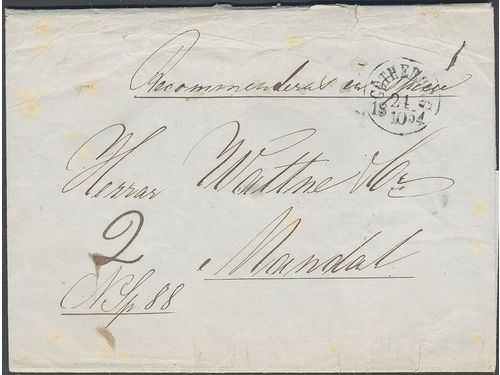 Recommenderas
GÖTHEBORG
21
18 10 54
Herrar Wattne & Co
2
Mandal.
N Sp. 88